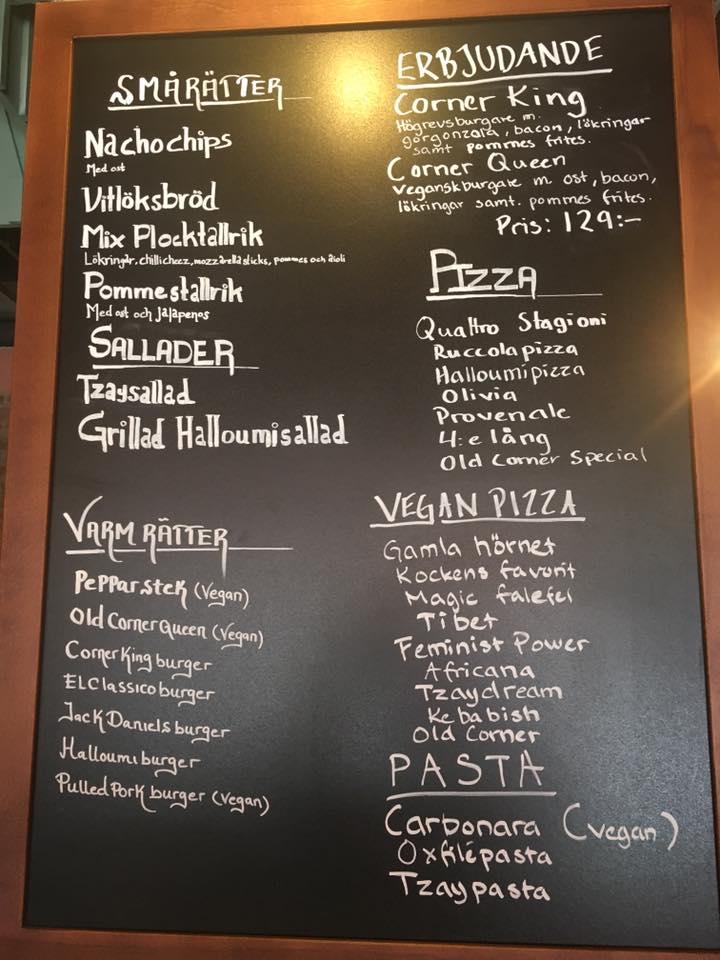 SMÅRÄTTER
Nachochips
Med ost
Vitlöksbröd
Mix Plocktallrik
Lökringar, chillicheez, mozzarellasticks, pommes och aioli
Pommestallrik
Med ost och jalapenos
SALLADER
Tzaysallad
Grillad Halloumisallad
VARMRÄTTER
Pepparstek (Vegan)
Old Corner Queen (Vegan)
Corner King burger
EL Classico burger
Jack Daniels burger
Halloumi burger
Pulled Pork burger (Vegan)
ERBJUDANDE
Corner King
Högrevsburgare m.
gorgonzola, bacon, lökringar
samt pommes frites.
Corner Queen
Veganskburgare m ost, bacon,
lökringar samt. pommes frites.
Pris: 129:-
PIZZA
Quattro Stagioni
Ruccolapizza
Halloumipizza
Olivia
Provenale
4:e lång
Old Corner Special
VEGAN PIZZA
Gamla hörnet
Kockens favorit
Magic falefel
Tibet
Feminist Power
Africana
Tzaydream
Kebabish
Old Corner
PASTA
Carbonara (vegan)
Oxfilépasta
Tzaypasta